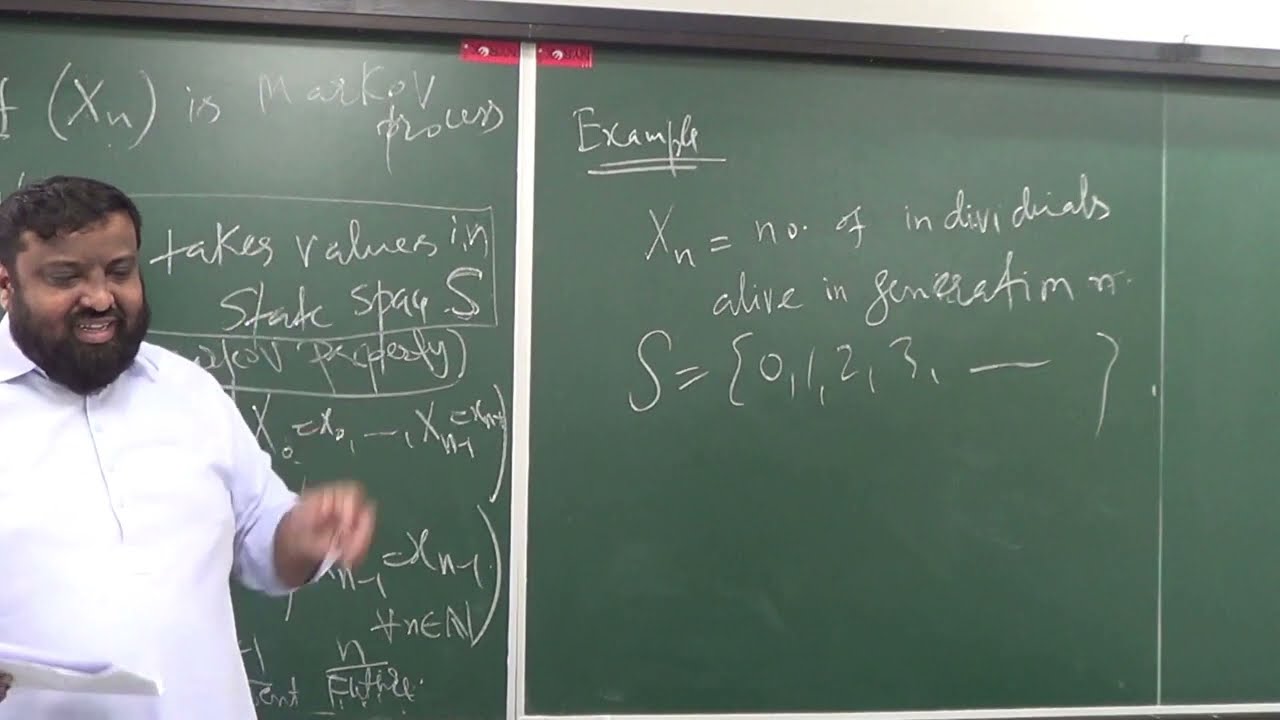 f (Xₙ) is Markov
process
takes values in
State space S
rkov property)
X₀=x₀, —, Xₙ₋₁=xₙ₋₁)
ₙ₋₁=xₙ₋₁)
∀n∈ℕ
-1 n
ent Future.
Example
Xₙ = no. of individuals
alive in generation n.
S = {0,1,2,3, — }.